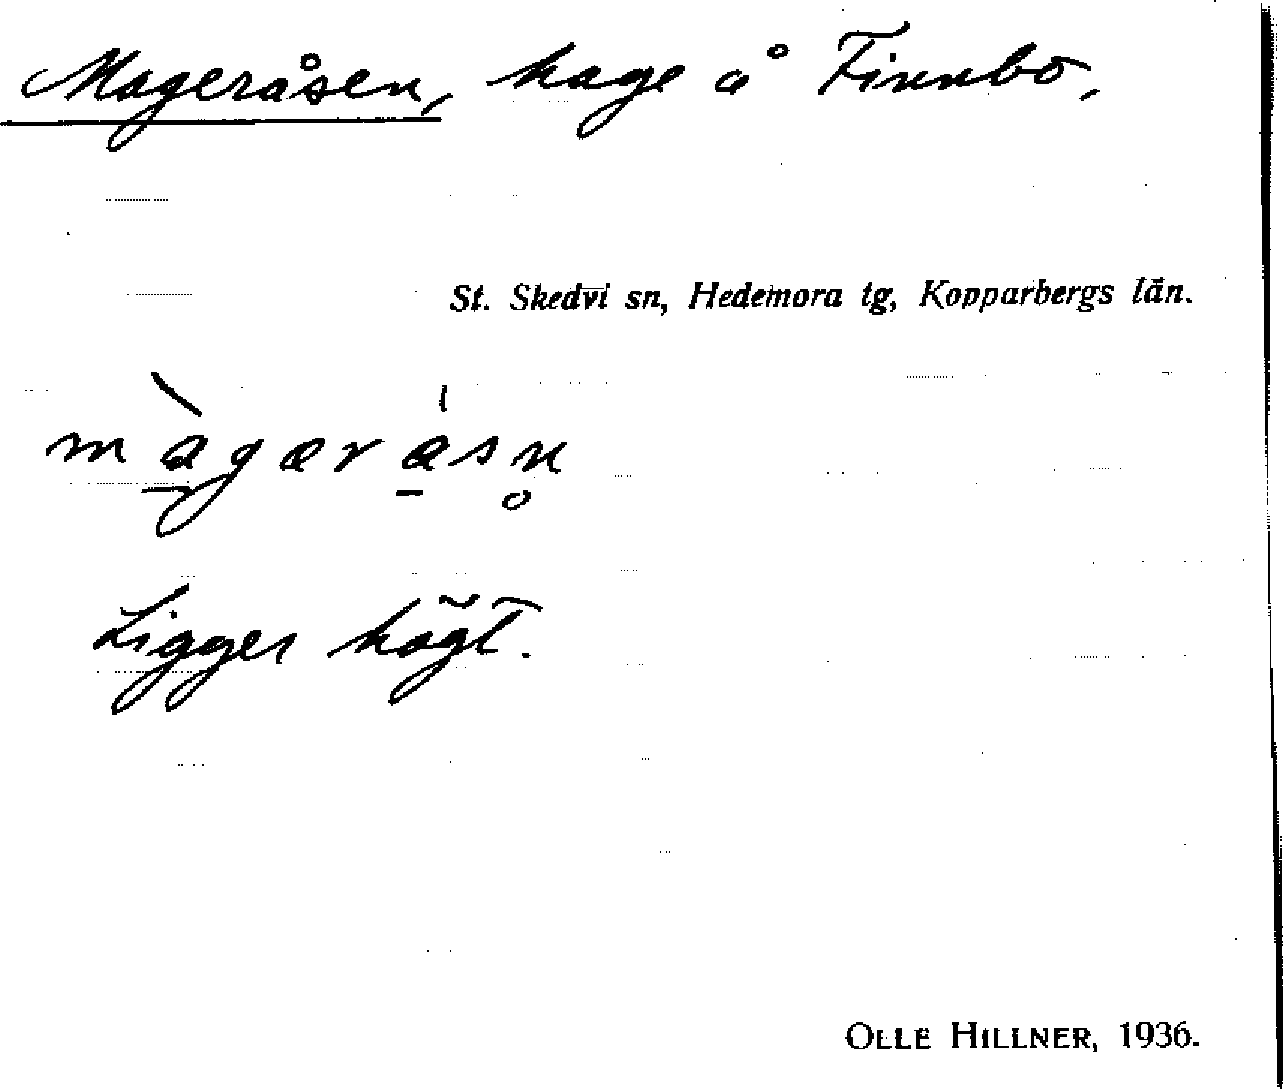 Mageråsen, hage å Finnbo,
St. Skedvi sn, Hedemora tg, Kopparbergs län.
màgæråsn̥
Ligger högt.
OLLE HILLNER, 1936.